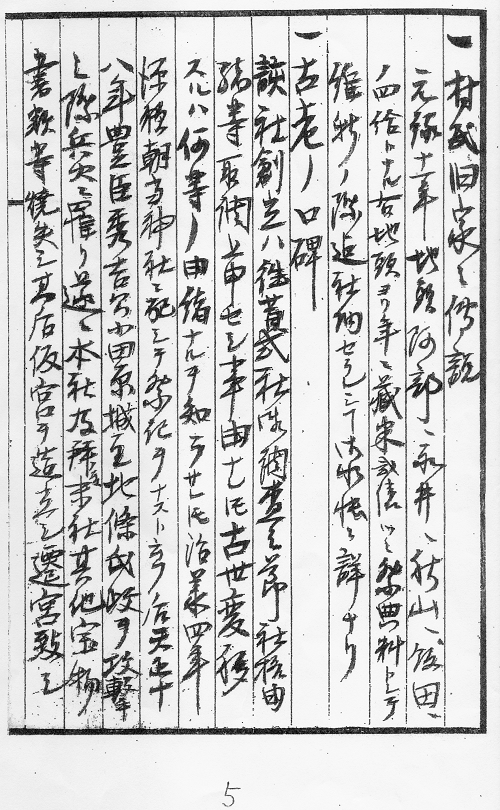 一 村民旧家ノ傳説
元禄十一年 地頭阿部、永井、秋山、飯田、
ノ四給トナル古地頭ヨリ年々蔵米弐俵ツヽ祭典料トシテ
維新ノ際迄社納セシ
詳ナリ
一 古老ノ口碑
該社創立ハ往昔式社御調査之節社格由
緒等取調上申セシ事由ナレ𪜈古世変移
スルハ何等ノ由緒ナルヲ知ラサレ𪜈治承四年
源頼朝
神社ニ配シテ祭祀ヲナスト云フ后天正十
八年豊臣秀吉公小田原城主北條氏政ヲ攻撃
ノ際兵火ニ罹リ遂ニ本社及拝殿末社其他宝物
書類等焼失シ其后仮宮ヲ造立シ遷宮致シ
5